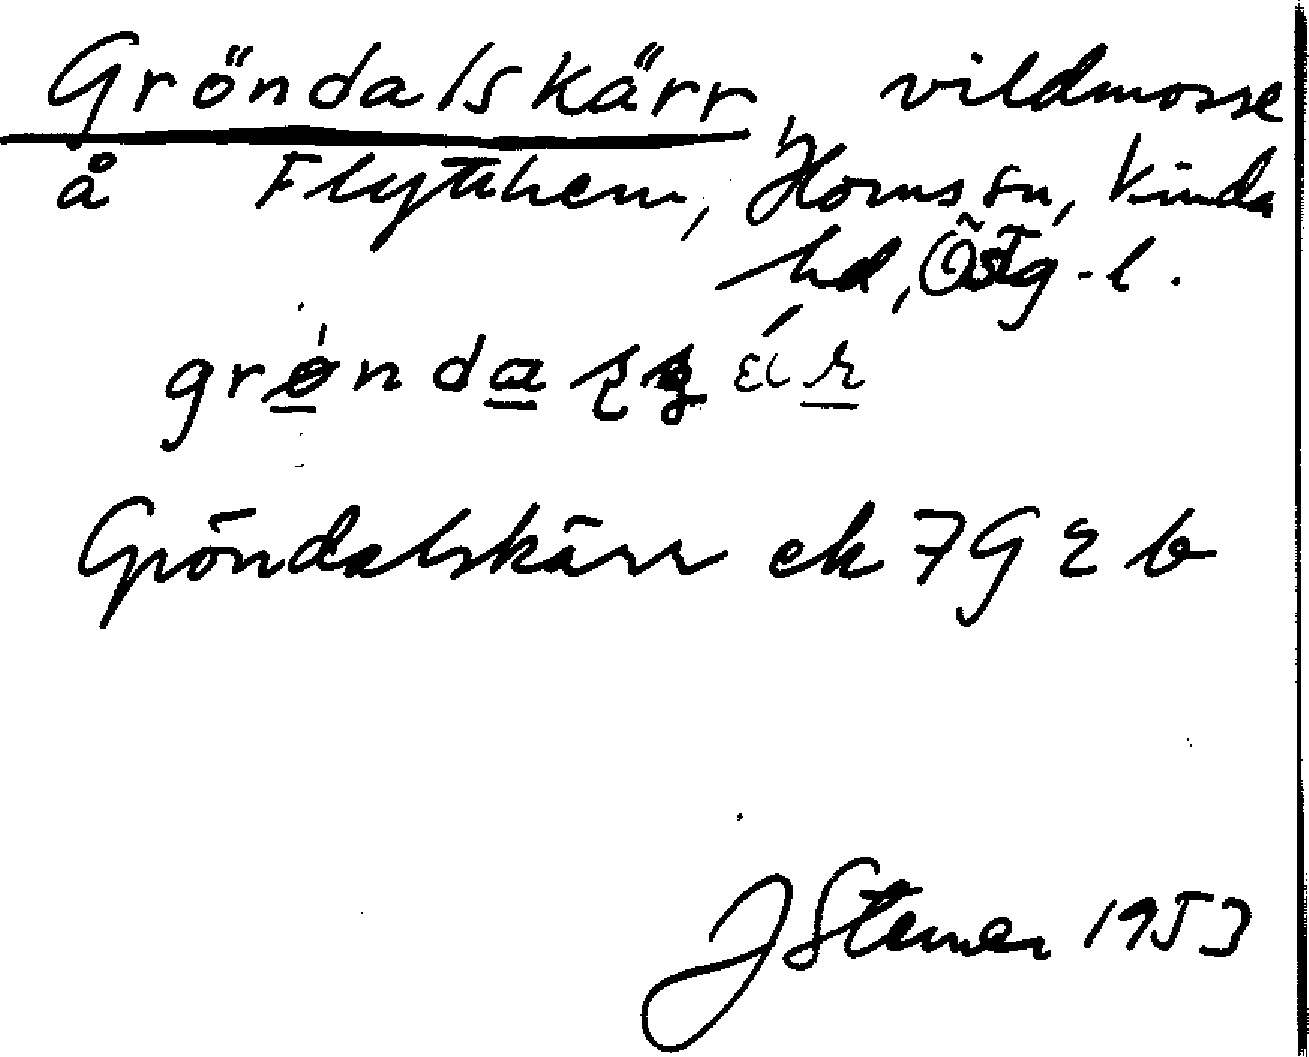 Gröndalskärr, vildmosse
å Flytthem, Horns sn, Kinda
hd, Östg.-l.
Gröndalskärr ek 7G 2 b
J Stemer 1953